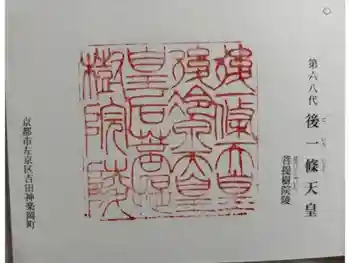 第六八代 後一條天皇
菩提樹院陵
後一條天皇
後冷泉天皇
皇后菩提
樹院陵
京都市左京区吉田神楽岡町